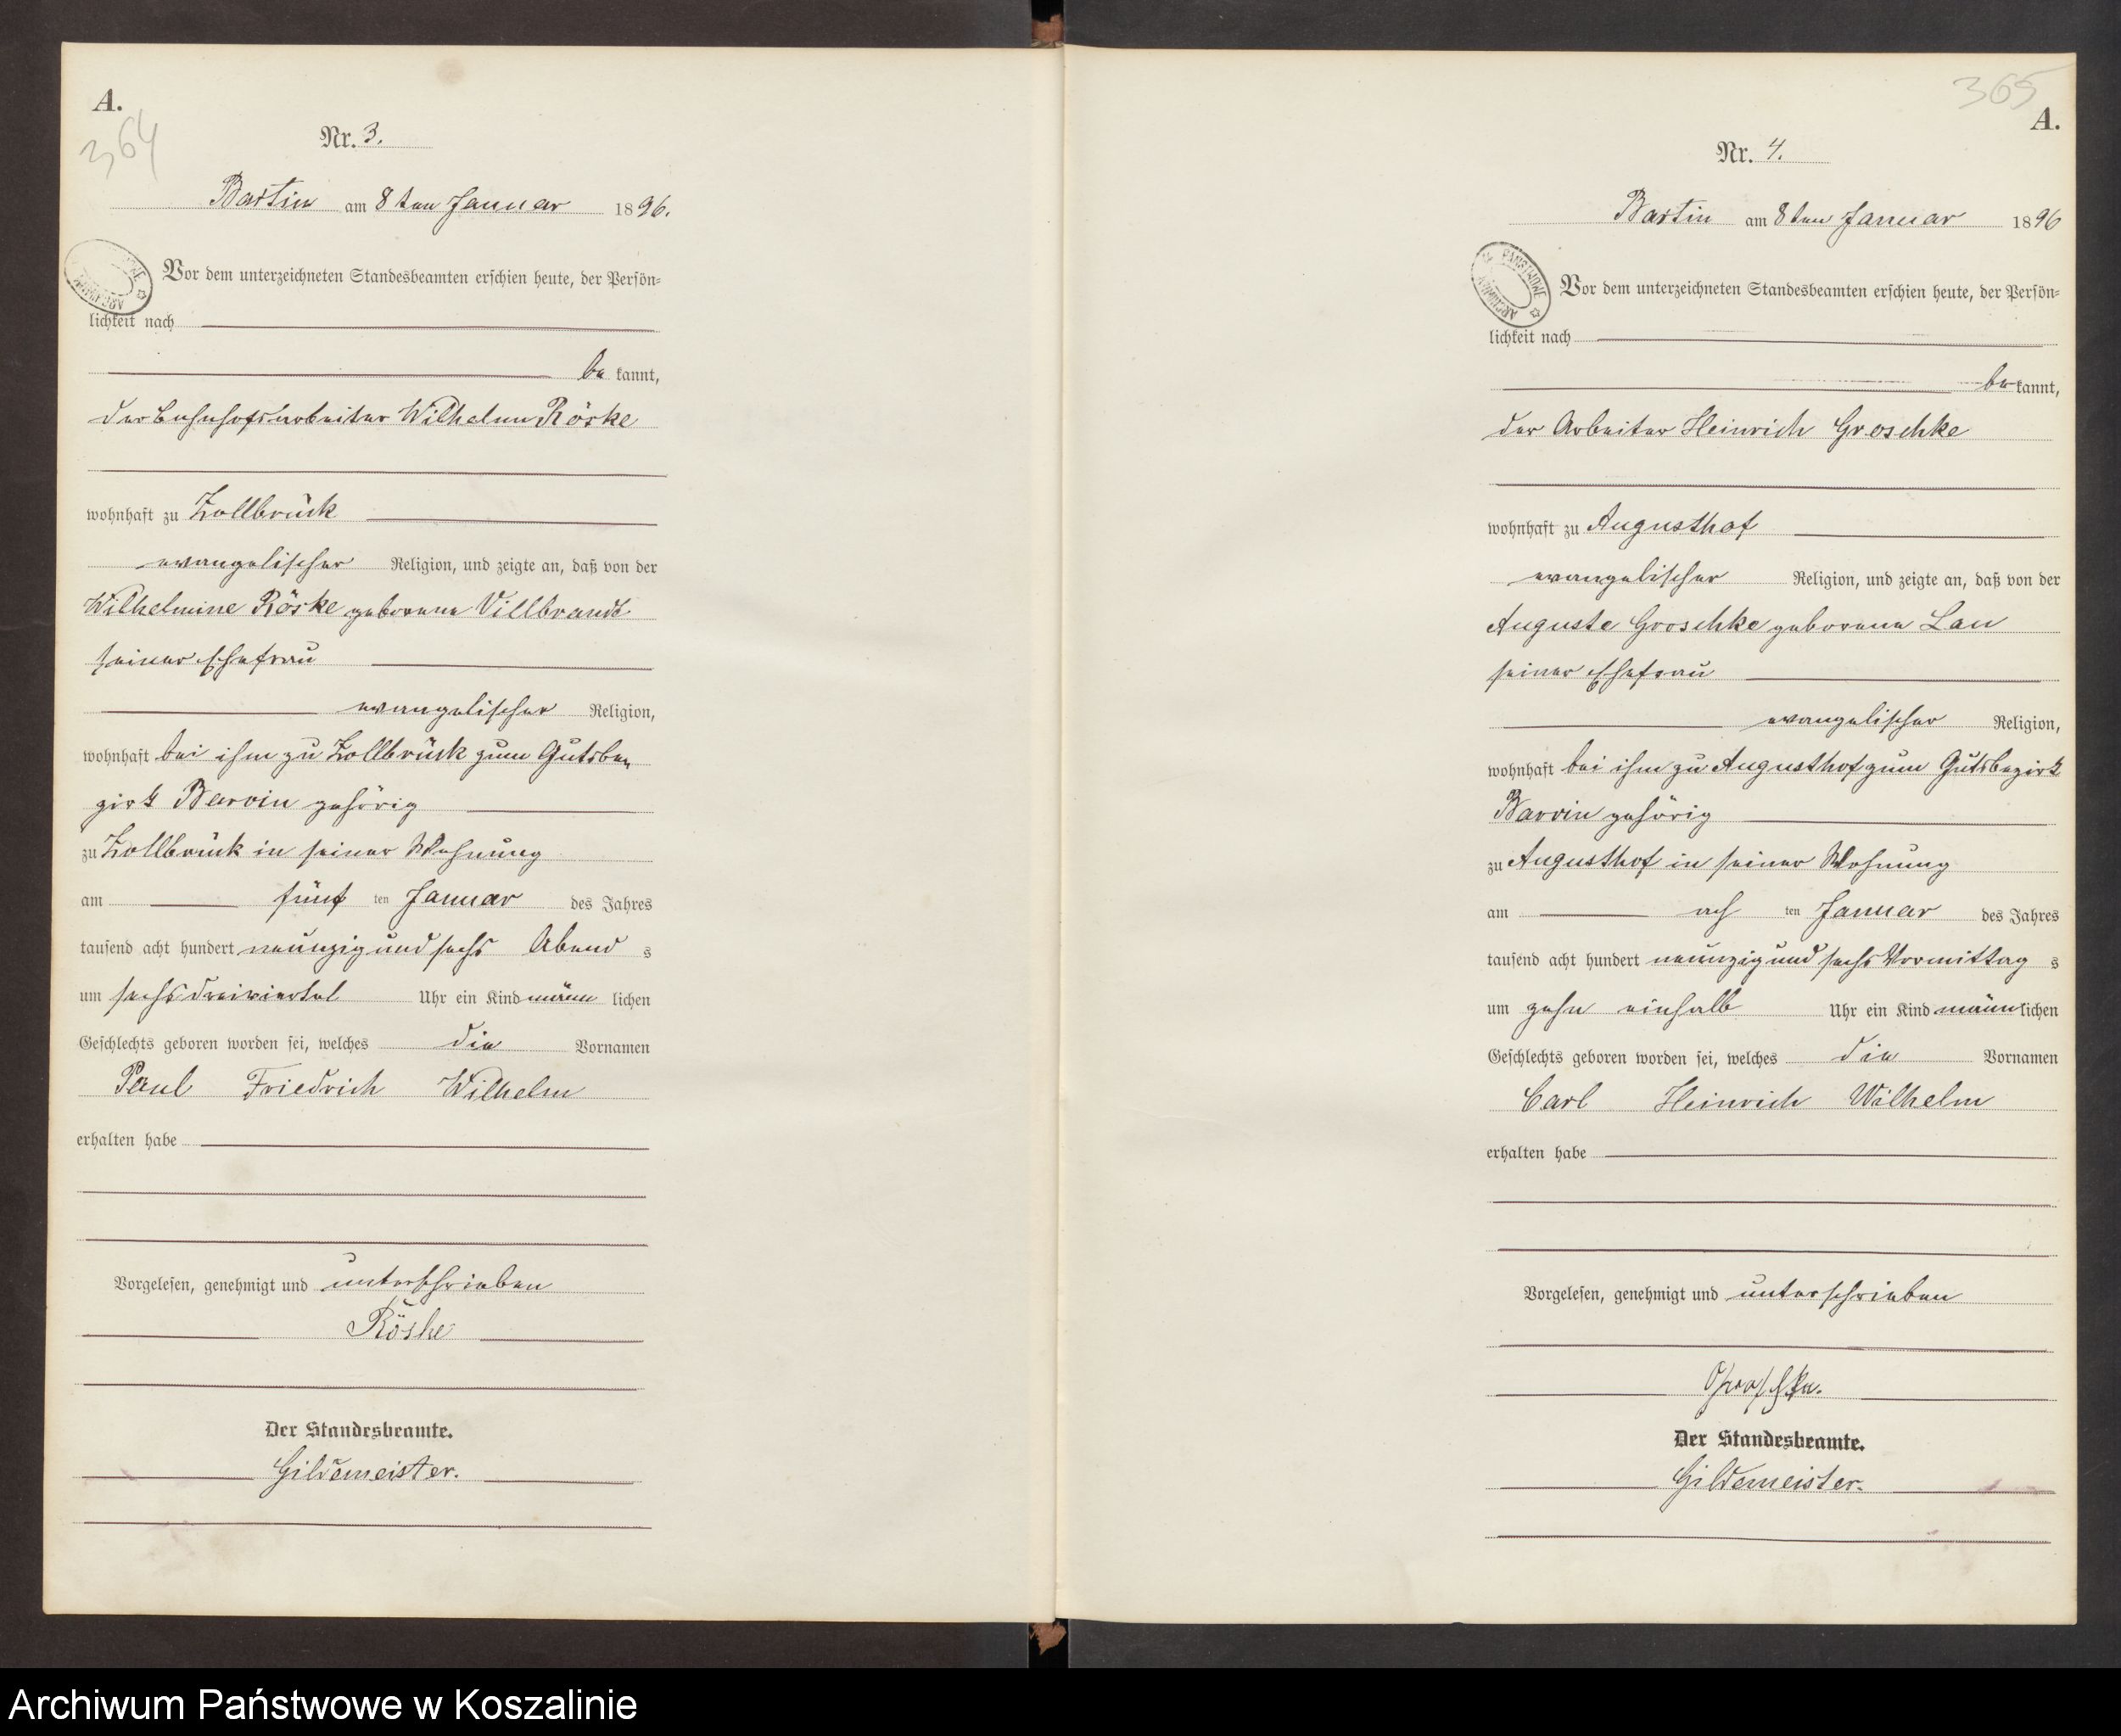 A.
364
Nr. 3.
Bartin am 8ten Januar 1896.
Vor dem unterzeichneten Standesbeamten erschien heute, der Persön=
lichkeit nach
be kannt,
der Bahnhofsarbeiter Wilhelm Röske
wohnhaft zu Zollbrück
evangelischer Religion, und zeigte an, daß von der
Wilhelmine Röske geborene Villbrandt
seiner Ehefrau
evangelischer Religion,
wohnhaft bei ihm zu Zollbrück zum Gutsbe=
zirk Barvin gehörig
zu Zollbrück in seiner Wohnung
am fünf ten Januar des Jahres
tausend acht hundert neunzig und sechs Abend s
um sechs dreiviertel Uhr ein Kind männ lichen
Geschlechts geboren worden sei, welches die Vornamen
Paul Friedrich Wilhelm
erhalten habe
Vorgelesen, genehmigt und unterschrieben
Röske
Der Standesbeamte.
Gildemeister.
365
A.
Nr. 4.
Bartin am 8ten Januar 1896
PAŃSTWOWE ARCHIWUM
Vor dem unterzeichneten Standesbeamten erschien heute, der Persön=
lichkeit nach
be kannt,
der Arbeiter Heinrich Groschke
wohnhaft zu Augusthof
evangelischer Religion, und zeigte an, daß von der
Auguste Groschke geborene Lau
seiner Ehefrau
evangelischer Religion,
wohnhaft bei ihm zu Augusthof zum Gutsbezirk
Barvin gehörig
zu Augusthof in seiner Wohnung
am ach ten Januar des Jahres
tausend acht hundert neunzig und sechs Vormittag s
um zehn einhalb Uhr ein Kind männ lichen
Geschlechts geboren worden sei, welches die Vornamen
Carl Heinrich Wilhelm
erhalten habe
Vorgelesen, genehmigt und unterschrieben
Groschke.
Der Standesbeamte.
Gildemeister.
Archiwum Państwowe w Koszalinie